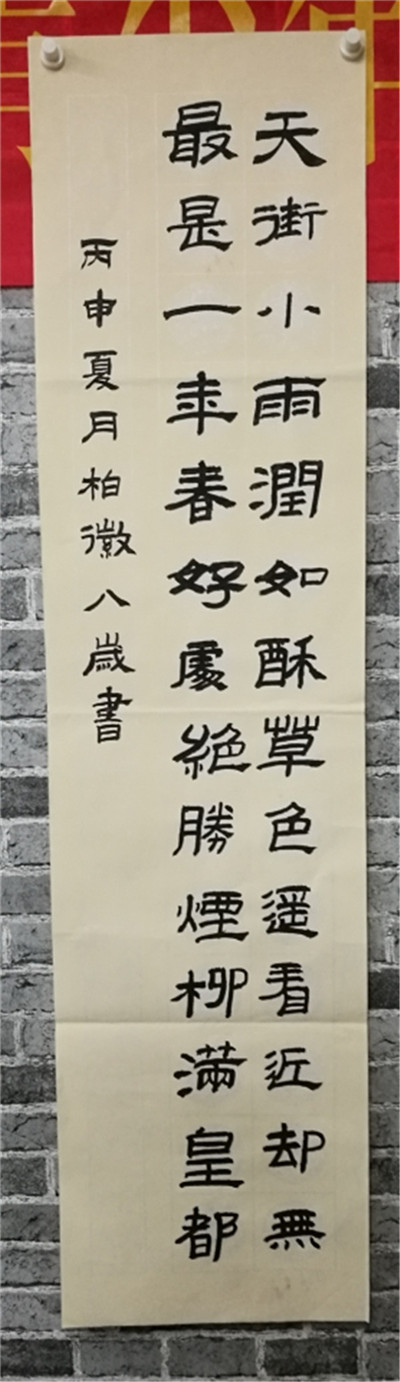 天街小雨潤如酥草色遥看近却無
最是一年春好處絕勝煙柳滿皇都
丙申夏月柏徽八歲書